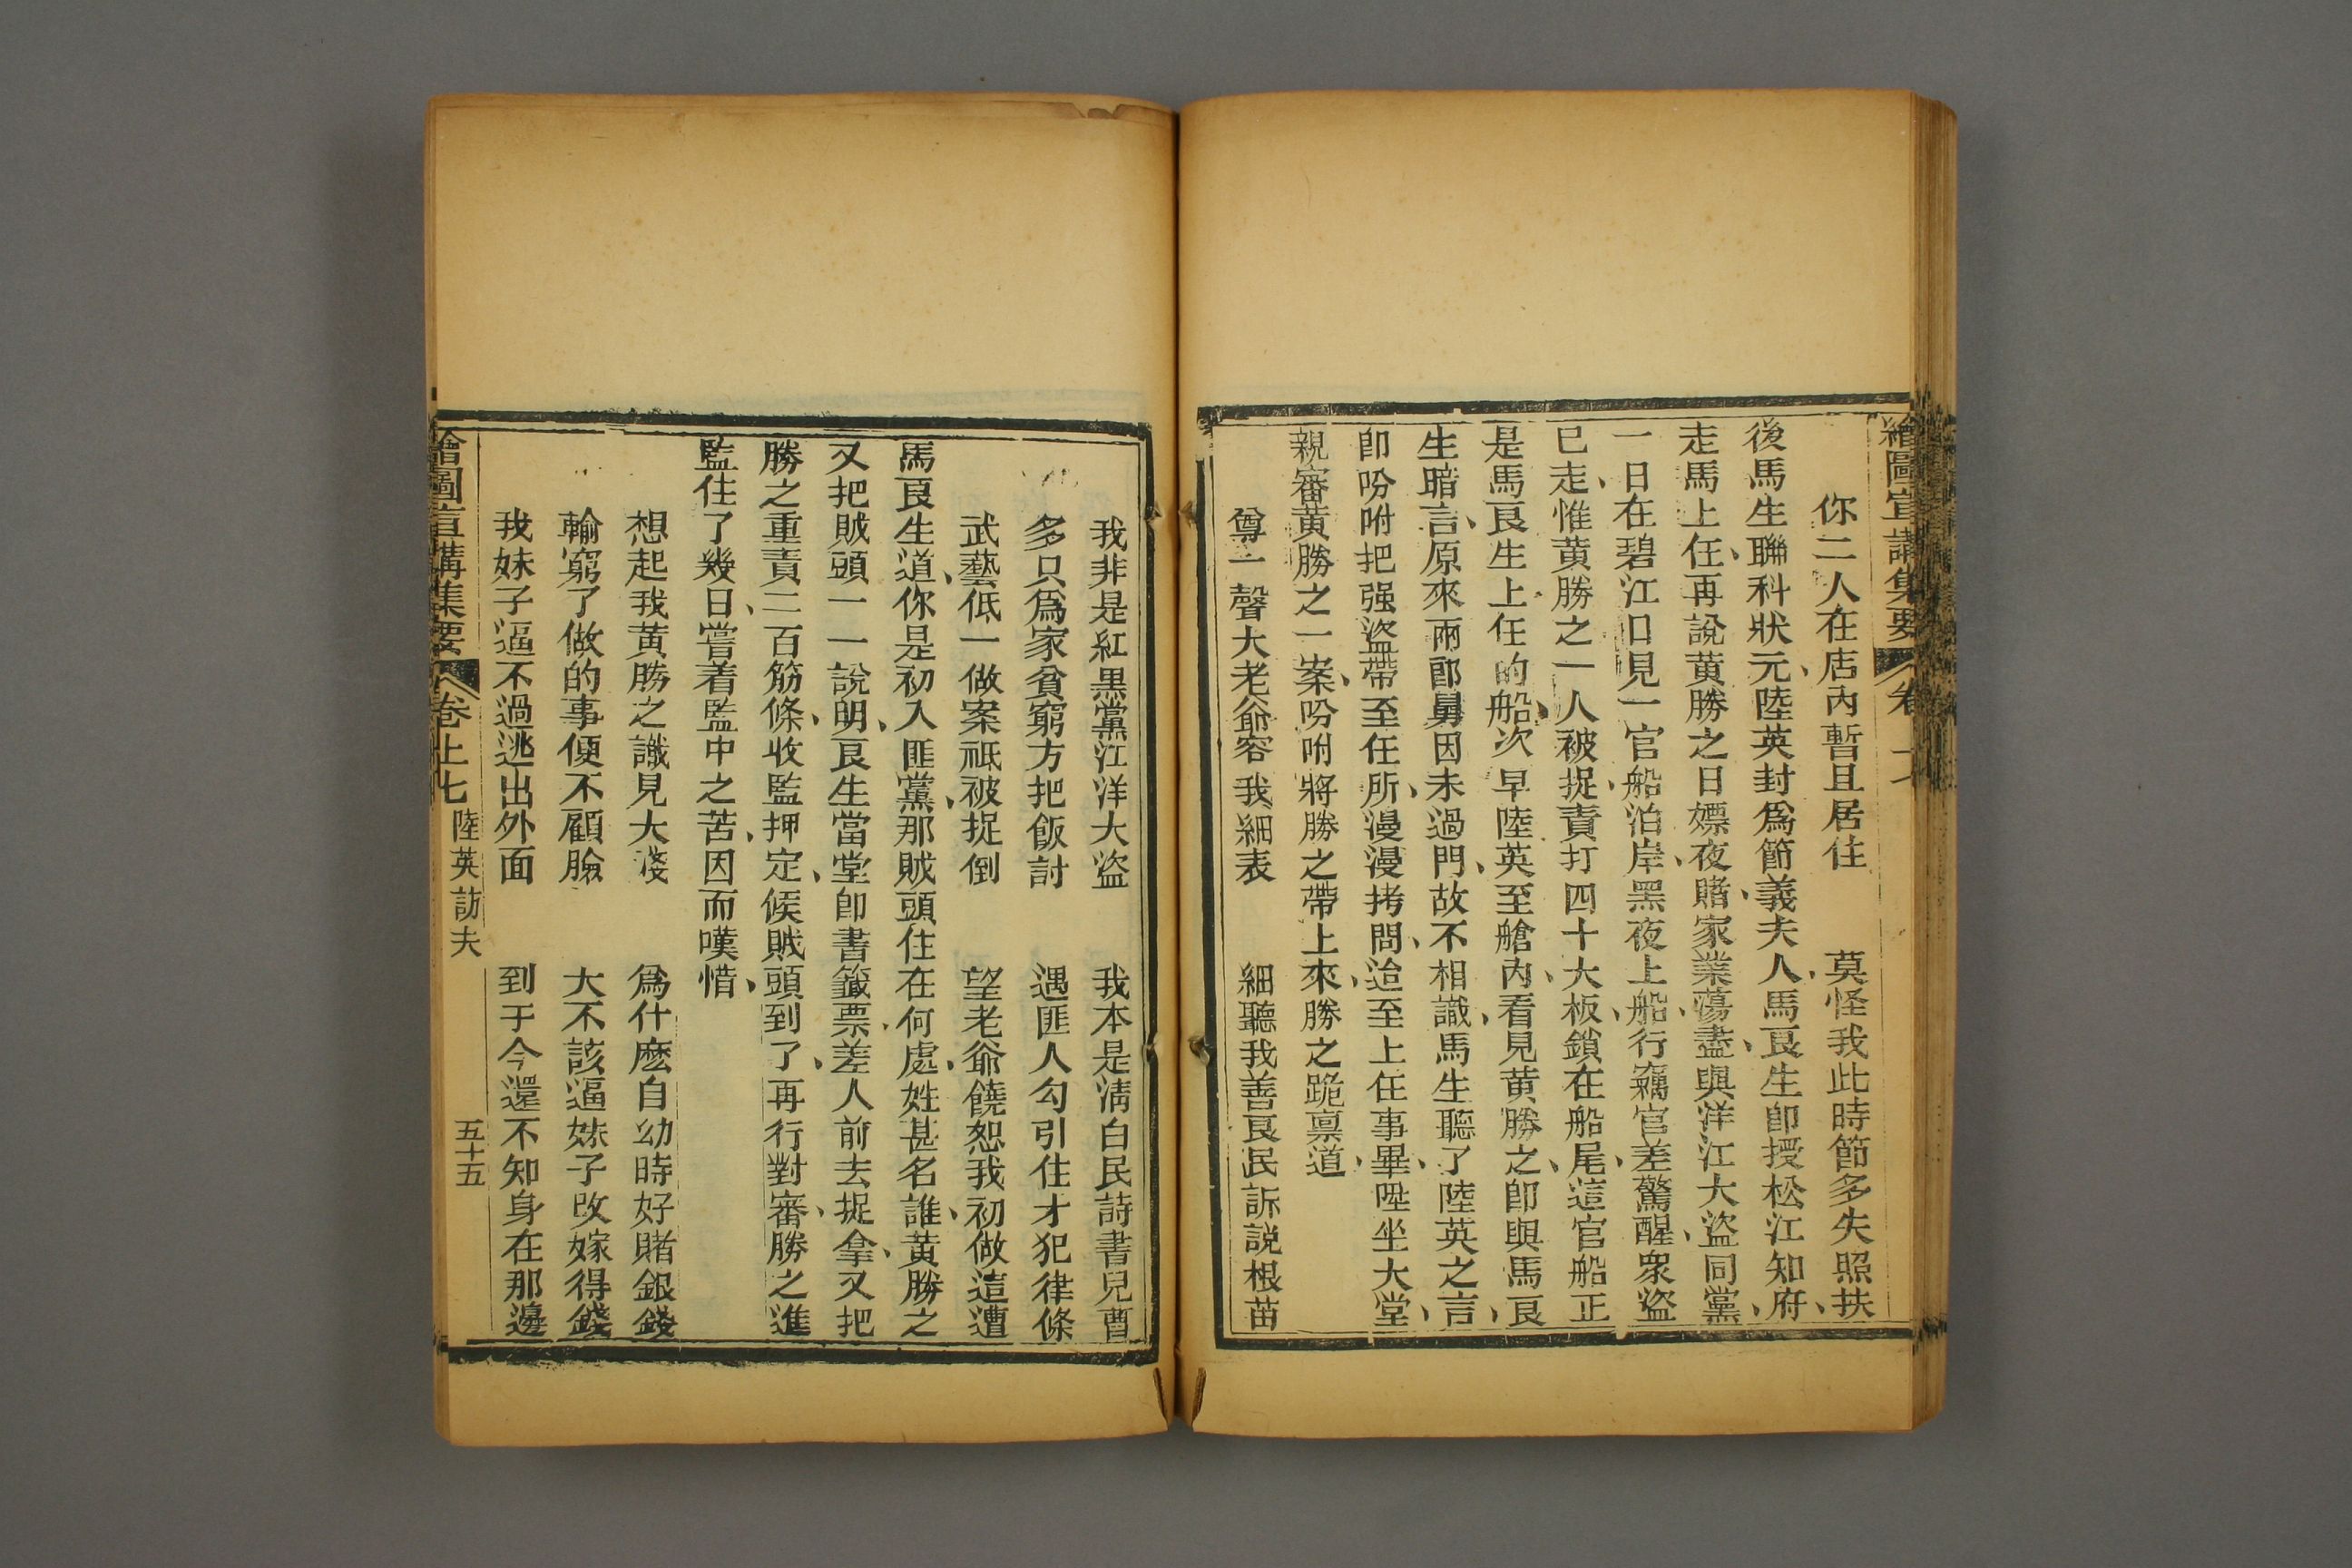 繪圖宣講集要 卷
你二人在店內暫且居住 莫怪我此時節多失照扶
後馬生聯科狀元、陸英封爲節義夫人、馬良生卽授松江知府、
走馬上任、再說黄勝之日嫖夜賭、家業蕩盡、與洋江大盜同黨、
一日在碧江口見一官船泊岸、黑夜上船、行竊官差驚醒、衆盜
已走、惟黄勝之一人被捉、責打四十大板、鎖在船尾、這官船正
是馬良生上任的船、次早陸英至艙內、看見黄勝之、卽與馬良
生暗言、原來兩郎舅因未過門、故不相識、馬生聽了陸英之言、
卽吩咐把强盜帶至任所、漫漫拷問、迨至上任事畢、陞坐大堂、
親審黄勝之一案、吩咐將勝之帶上來、勝之跪禀道、
尊一聲大老爺容我細表 細聽我善良民訴説根苗
我非是紅黑黨江洋大盜 我本是淸白民詩書兒曹
多只爲家貧窮方把飯討 遇匪人勾引住才犯律條
武藝低一做案祗被捉倒 望老爺饒恕我初做這遭
馬良生道、你是初入匪黨、那賊頭住在何處、姓甚名誰、黄勝之
又把賊頭一一說明、良生當堂卽書籤票、差人前去捉拿、又把
勝之重責二百筋條、收監押定、候賊頭到了、再行對審、勝之進
監住了幾日、嘗着監中之苦、因而嘆惜、
想起我黄勝之識見大淺 爲什麽自幼時好賭銀錢
輸窮了做的事便不顧臉 大不該逼妹子改嫁得錢
我妹子逼不過逃出外面 到于今還不知身在那邊
繪圖宣講集要 卷上七 陸英訪夫 五十五